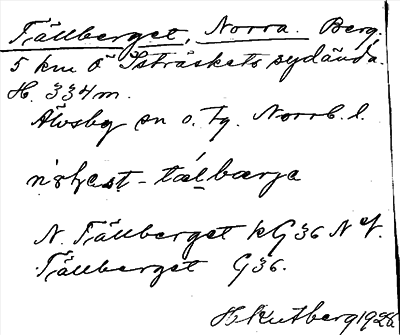 Tällberget, Norra. Berg.
5 km Ö Isträskets sydända.
H. 334 m.
Älvsby sn o. Tg. Norrb. l.
tál_bærje
N. Tällberget kG36 N
Tällberget G36.
H. Kutberg 1928